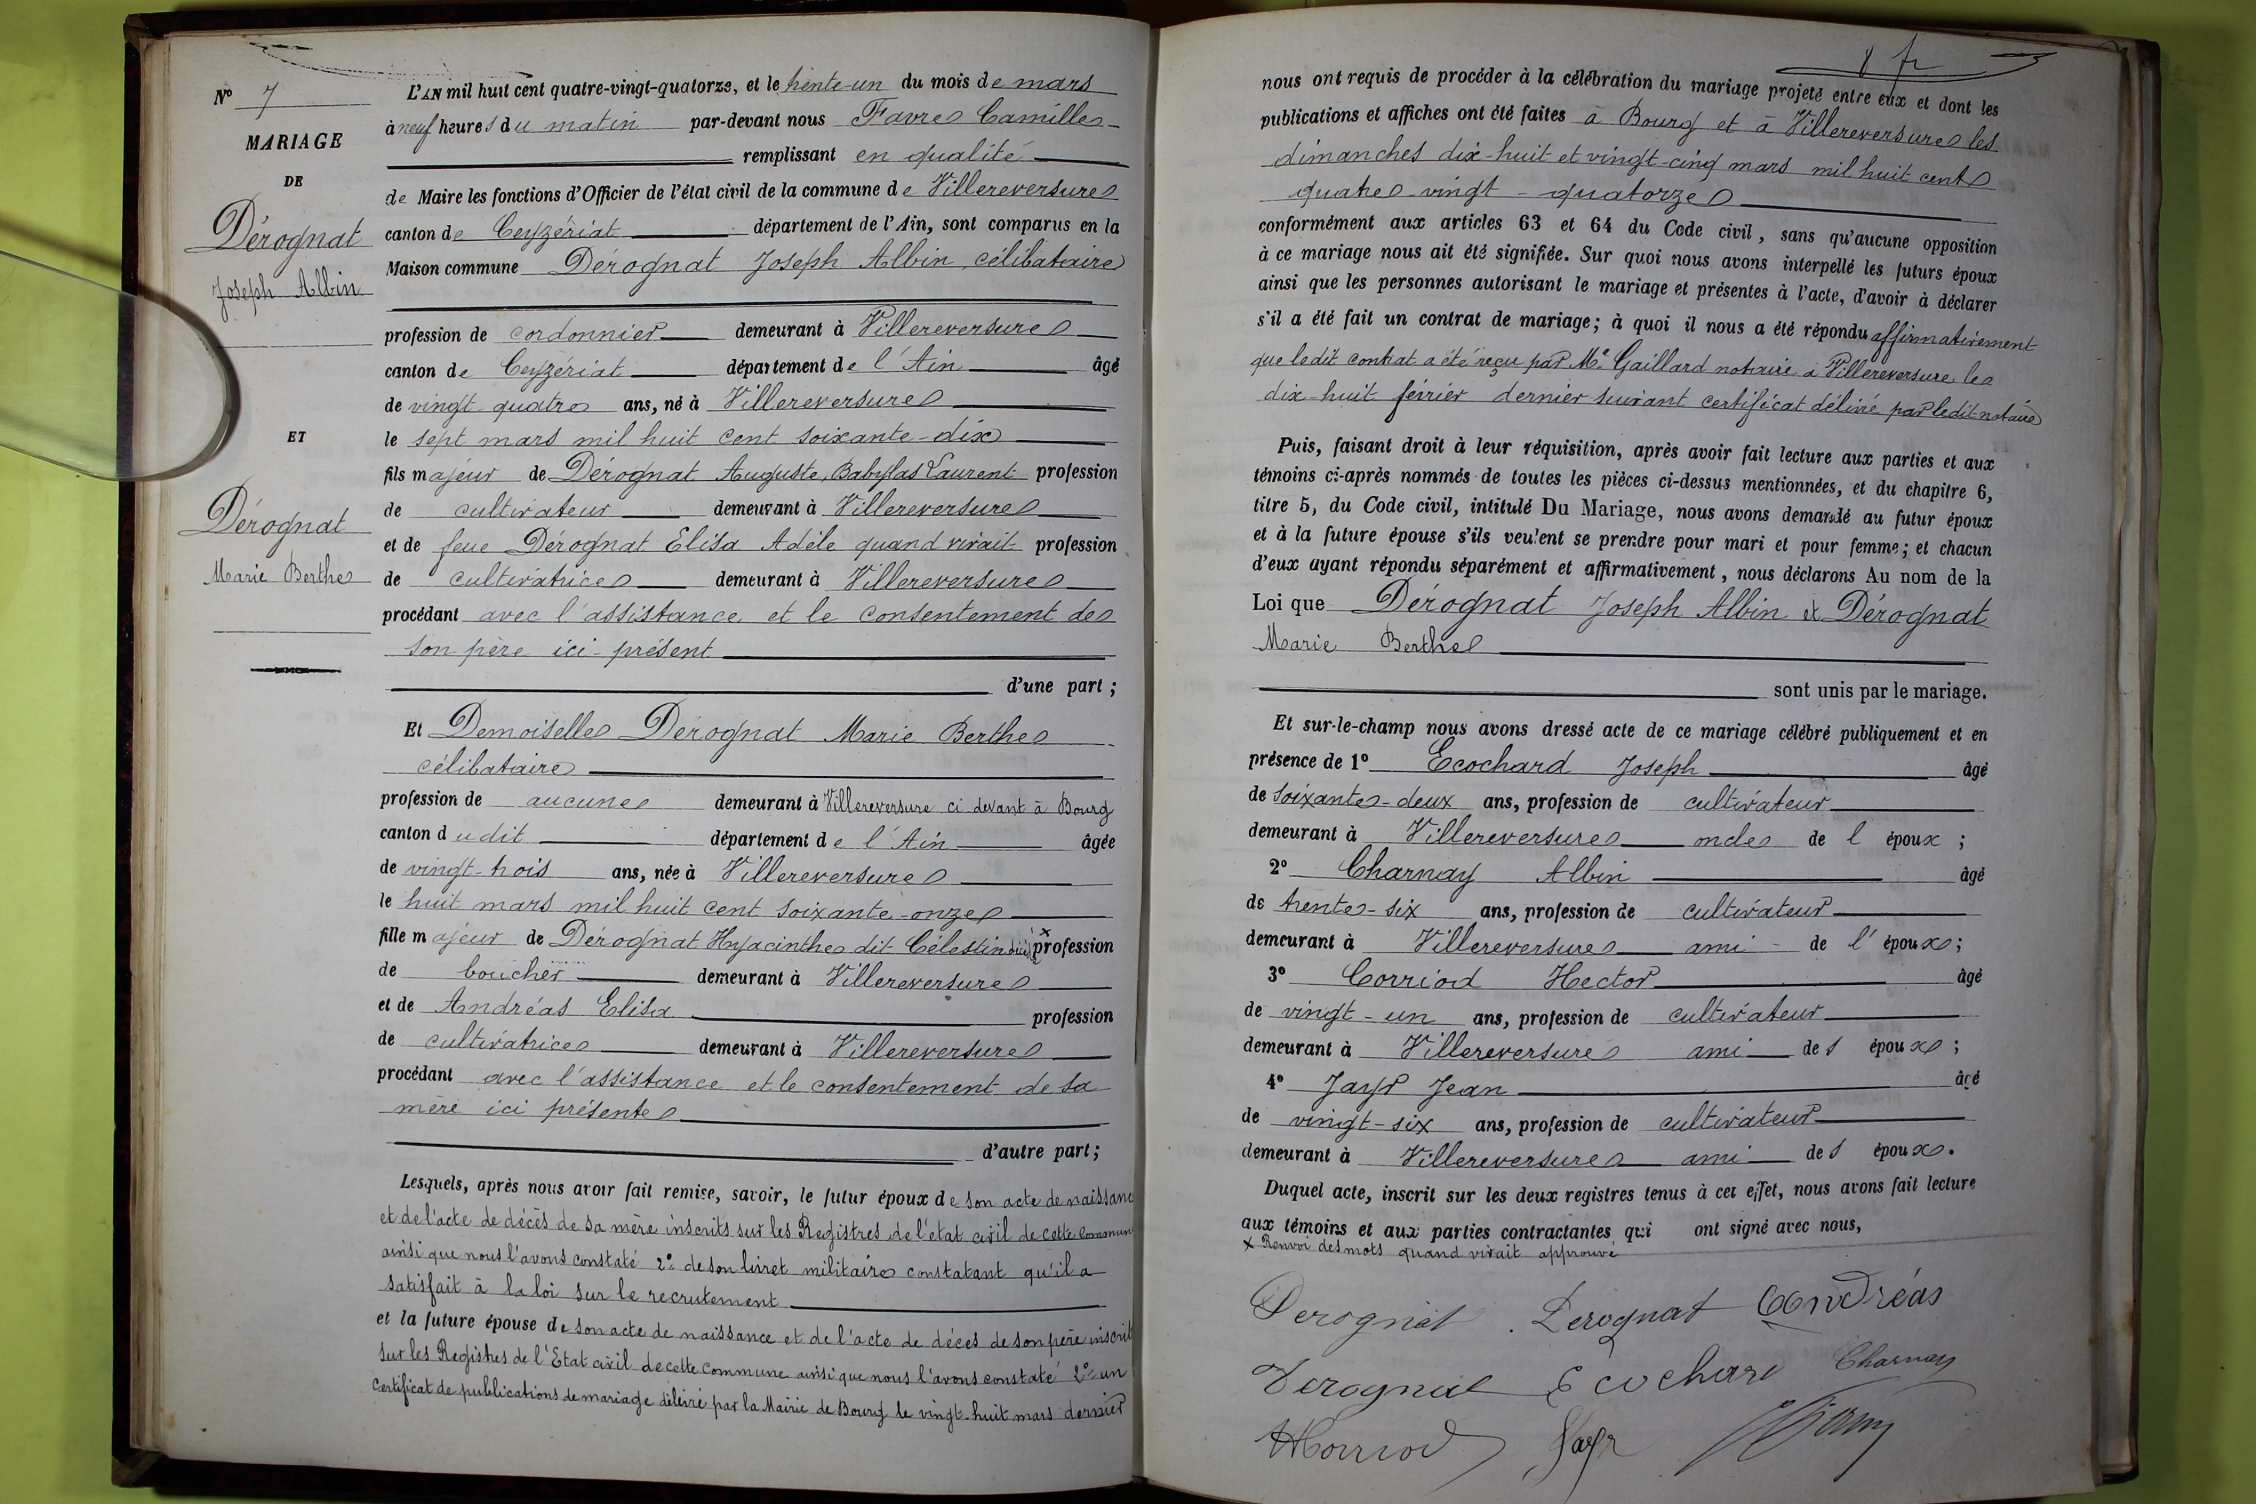 Nº 7
MARIAGE
DE
Dérognat
Joseph Albin
ET
Dérognat
Marie Berthe
L'AN mil huit cent quatre-vingt-quatorze, et le trente-un du mois de mars
à neuf heures du matin par-devant nous Favre Camille
remplissant en qualité
de Maire les fonctions d'Officier de l'état civil de la commune de Villereversure
canton de Ceyzériat département de l'Ain, sont comparus en la
Maison commune Derognat Joseph Albin, célibataire
profession de cordonnier demeurant à Villereversure
canton de Ceyzériat département de l'Ain âgé
de vingt quatre ans, né à Villereversure
le sept mars mil huit cent soixante-dix
fils majeur de Dérognat Auguste, Babylas Laurent profession
de cultivateur demeurant à Villereversure
et de feue Dérognat Elisa Adèle quand vivait profession
de cultivatrice demeurant à Villereversure
procédant avec l'assistance et le consentement de
son père ici-présent
d'une part ;
Et Demoiselle Dérognat Marie Berthe
célibataire
profession de aucune demeurant à Villereversure ci devant à Bourg
canton dudit département de l'Ain âgée
de vingt-trois ans, née à Villereversure
le huit mars mil huit cent soixante-onze
fille majeur de Dérognat Hyacinthe dit Célestin x profession
de boucher demeurant à Villereversure
et de Andréas Elisa profession
de cultivatrice demeurant à Villereversure
procédant avec l'assistance et le consentement de sa
mère ici présente
d'autre part ;
Lesquels, après nous avoir fait remise, savoir, le futur époux de son acte de naissance
et de l'acte de décès de sa mère inscrits sur les Registres de l'état civil de cette commune
ainsi que nous l'avons constaté 2º de son livret militaire constatant qu'il a
satisfait à la loi sur le recrutement
et la future épouse de son acte de naissance et de l'acte de décès de son père inscrits
sur les Registres de l'Etat civil de cette commune ainsi que nous l'avons constaté 2º un
certificat de publications de mariage délivré par la Mairie de Bourg le vingt-huit mars dernier
nous ont requis de procéder à la célébration du mariage projeté entre eux et dont les
publications et affiches ont été faites à Bourg et à Villereversure les
dimanches dix-huit et vingt-cinq mars mil huit cent
quatre-vingt-quatorze
conformément aux articles 63 et 64 du Code civil, sans qu'aucune opposition
à ce mariage nous ait été signifiée. Sur quoi nous avons interpellé les futurs époux
ainsi que les personnes autorisant le mariage et présentes à l'acte, d'avoir à déclarer
s'il a été fait un contrat de mariage ; à quoi il nous a été répondu affirmativement
que ledit contrat a été reçu par Me Gaillard notaire à Villereversure le
dix-huit février dernier suivant certificat délivré par ledit notaire
Puis, faisant droit à leur réquisition, après avoir fait lecture aux parties et aux
témoins ci-après nommés de toutes les pièces ci-dessus mentionnées, et du chapitre 6,
titre 5, du Code civil, intitulé Du Mariage, nous avons demandé au futur époux
et à la future épouse s'ils veulent se prendre pour mari et pour femme ; et chacun
d'eux ayant répondu séparément et affirmativement, nous déclarons Au nom de la
Loi que Dérognat Joseph Albin et Dérognat
Marie Berthe
sont unis par le mariage.
Et sur-le-champ nous avons dressé acte de ce mariage célébré publiquement et en
présence de 1º Ecochard Joseph âgé
de soixante-deux ans, profession de cultivateur
demeurant à Villereversure oncle de l époux ;
2º Charnay Albin âgé
de trente-six ans, profession de cultivateur
demeurant à Villereversure ami de l'époux ;
3º Corriod Hector âgé
de vingt-un ans, profession de cultivateur
demeurant à Villereversure ami des époux ;
4º Jayr Jean âgé
de vingt-six ans, profession de cultivateur
demeurant à Villereversure ami des époux.
Duquel acte, inscrit sur les deux registres tenus à cet effet, nous avons fait lecture
aux témoins et aux parties contractantes qui ont signé avec nous,
x Renvoi des mots quand vivait approuvé
Derognat Derognat Andréas
Derognat Ecochard Charnay
HCorriod Jayr